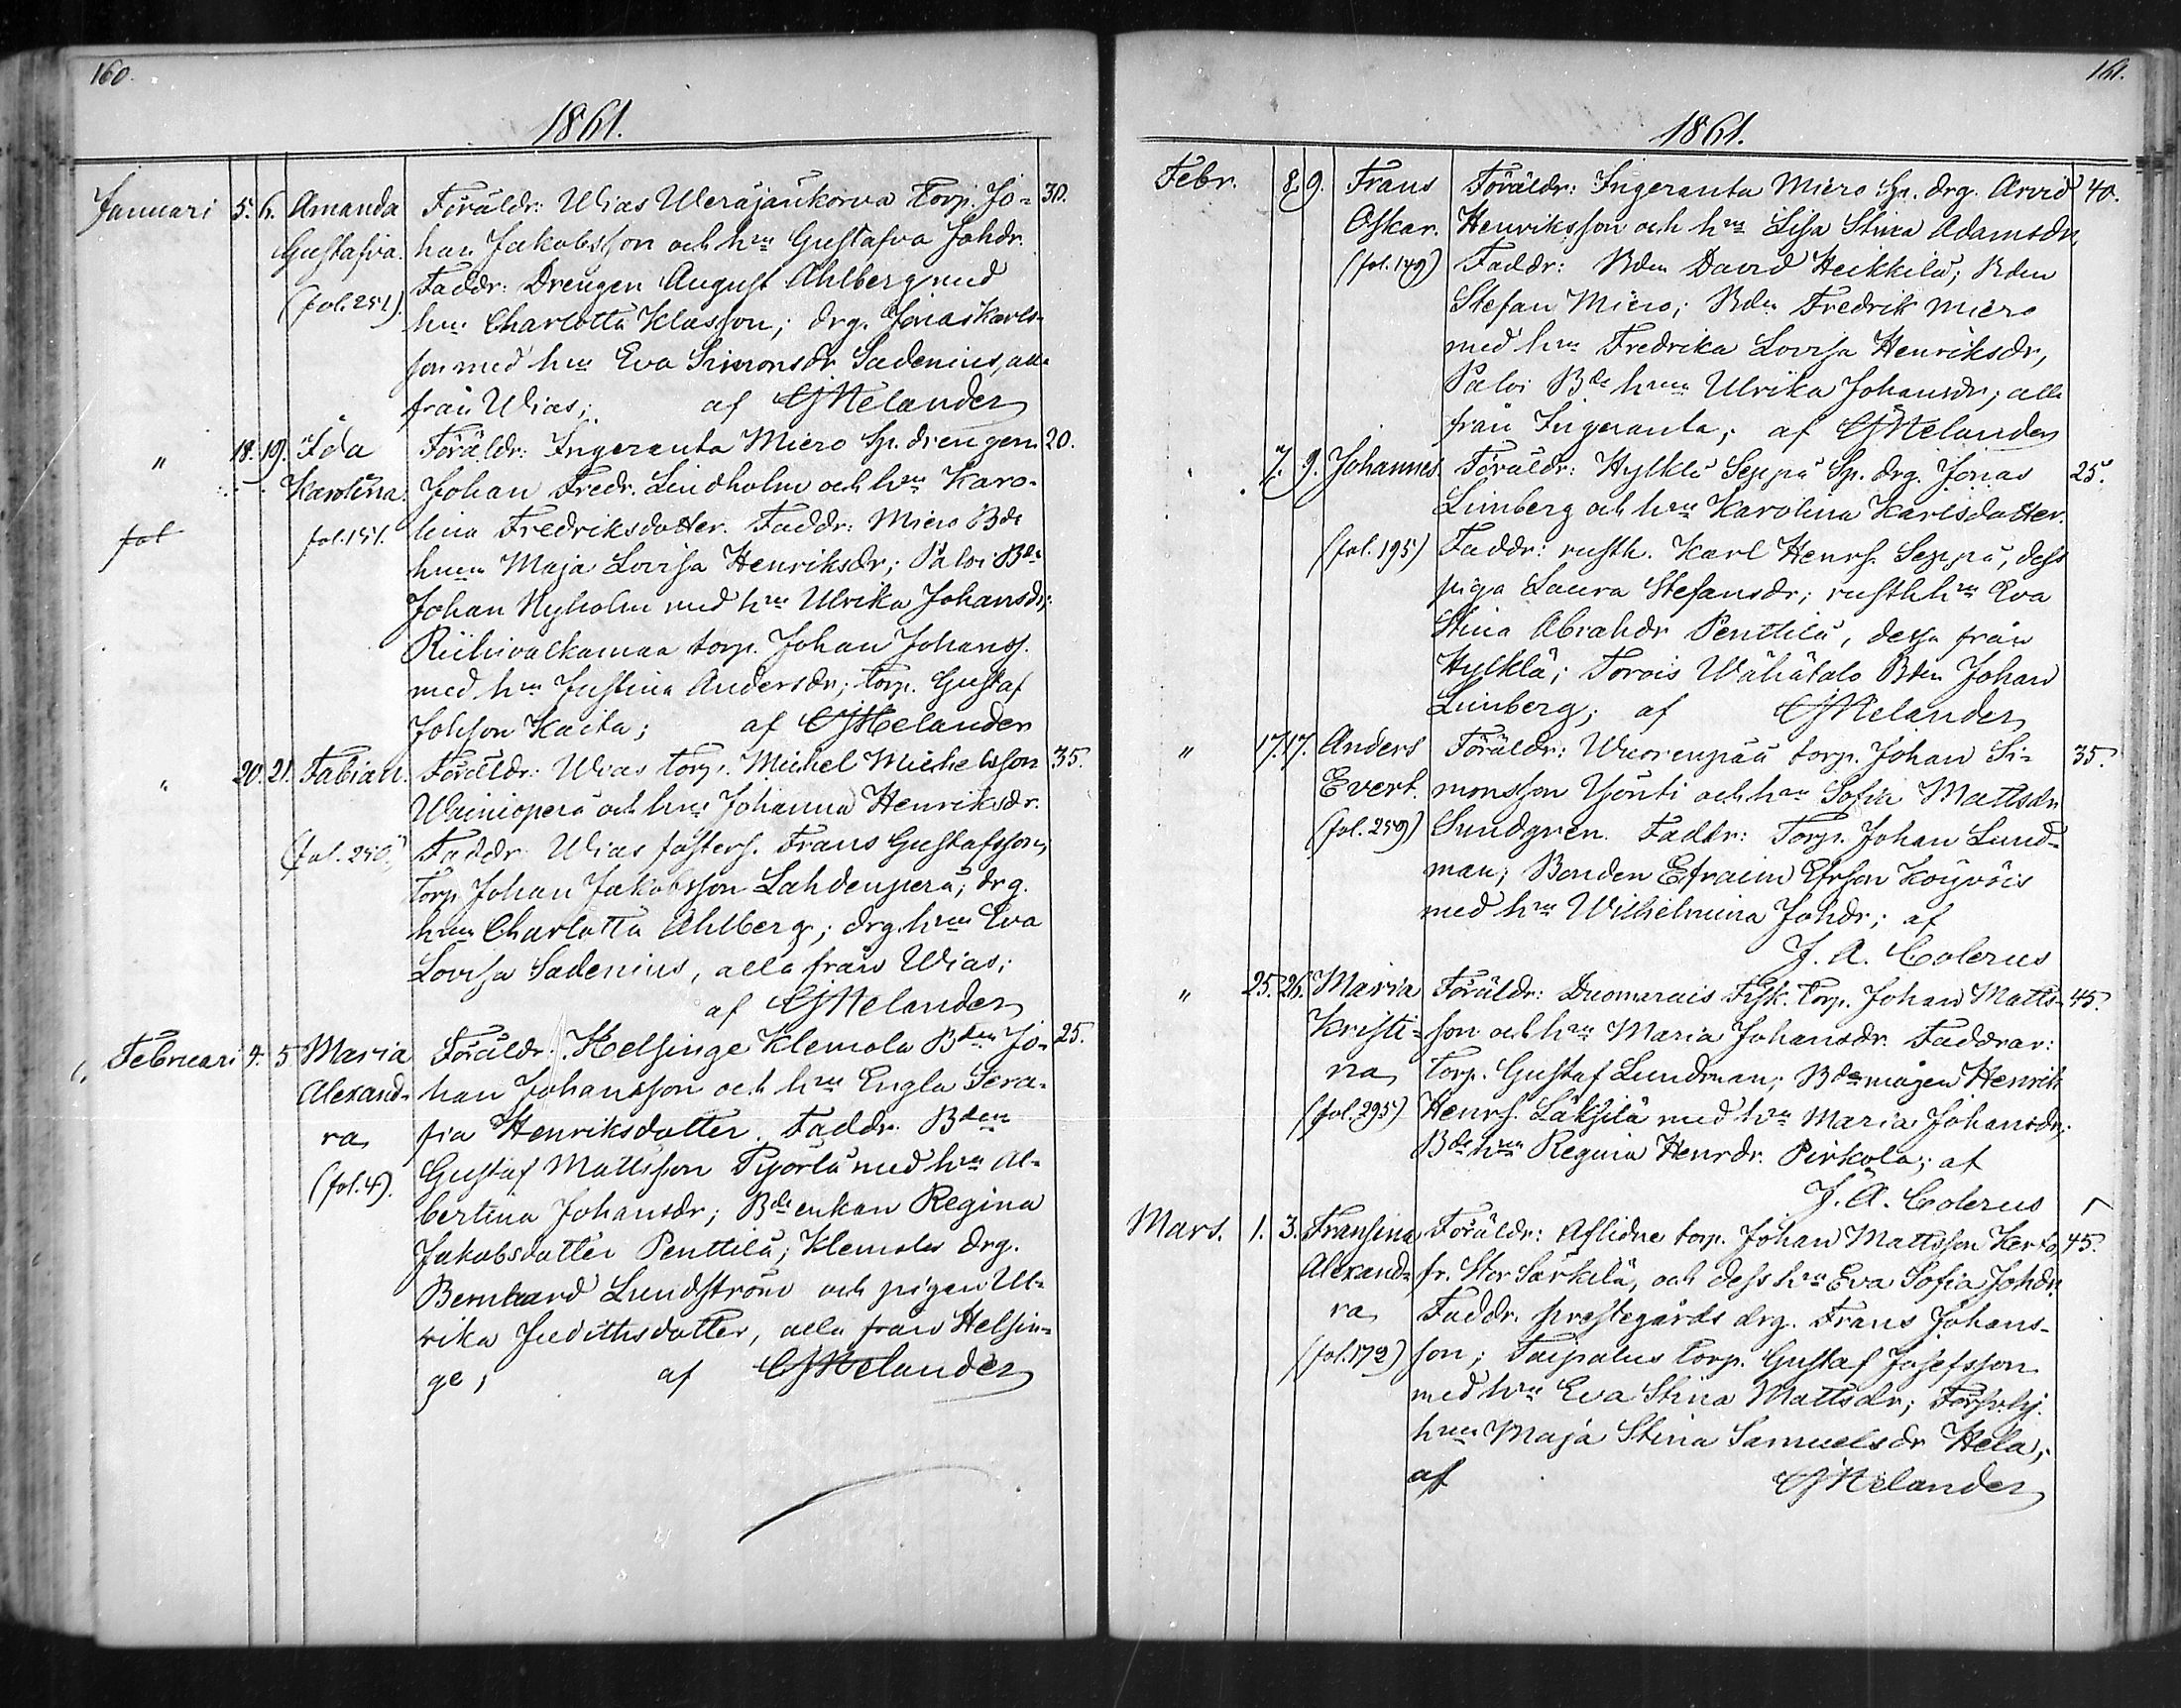 160.
1861.
Januari 5. 6. Amanda Föräldr: Wias Weräjänkorva Torp. Jo- 30.
Gustafva. han Jakobsson och hru Gustafva Johdr.
Faddr: Drengen August Ahlberg med
(fol. 251). hru Charlotta Klasson; drg. Jonas Karls-
son med hru Eva Simonsdr Sadenius, alla
från Wias; af CJMelander
" 18. 19. Ida Föräldr: Ingeranta Miero Sp. drengen 20.
Karolina. Johan Fredr. Lindholm och hru Karo-
fol fol. 151. lina Fredriksdotter. Faddr: Miero Bde
hrun Maja Lovisa Henriksdr; Paloi Bde
Johan Nyholm med hru Ulrika Johansdr;
Riihivalkamaa torp. Johan Johanss.
med hru Justina Andersdr; Torp. Gustaf
Johsson Kaita; af CJMelander
" 20. 21. Fabian. Föräldr: Wias Torp. Michel Michelsson 35.
Wainioperä och hru Johanna Henriksdr.
(fol. 250.) Faddr: Wias fosters. Frans Gustafsson,
Torp. Johan Jakobsson Lahdenperä; drg.
hrun Charlotta Ahlberg; drg. hru Eva
Lovisa Sadenius, alla från Wias;
af CJMelander
Februari 4. 5 Maria Föräldr: Helsinge Klemola Bden Jo- 25.
Alexand- han Johansson och hru Engla Sera-
ra, fia Henriksdotter. Faddr. Bden
(fol. 4). Gustaf Mattsson Pijorlä med hru Al-
bertina Johansdr; Bde enkan Regina
Jakobsdotter Penttilä; Klemola drg.
Bernhard Lundström och pigan Ul-
rika Judithsdotter, alla från Helsin-
ge; af CJMelander
161.
1861.
Febr. 8. 9. Frans Föräldr: Ingeranta Miero Sp. drg. Arvid 40.
Oskar. Henriksson och hru Lisa Stina Adamsdr,
(fol. 149) Faddr: Bden David Heikkilä; Bden
Stefan Miero; Bden Fredrik Miero
med hru Fredrika Lovisa Henriksdr,
Paloi Bde hrun Ulrika Johansdr; alla
från Ingeranta; af CJMelander
" 7. 9. Johannes. Föräldr: Hylkle Seppä Sp. drg. Jonas 25.
Limberg och hru Karolina Karlsdotter.
(fol. 195) Faddr: rusth. Karl Henrs. Seppä, dess
piga Laura Stefansdr; rusthhru Eva
Stina Abrahdr Penttilä, dessa från
Hylklä; Torois Wähätalo Bden Johan
Limberg; af CJMelander
" 17. 17. Anders Föräldr: Wuorenpää torp. Johan Si- 35.
Evert. monsson Yönti och hru Sofia Mattsdr
(fol. 259) Sundgren. Faddr: Torp. Johan Lund-
man; Bonden Efraim EfrsonKöyvöis
med hru Wilhelmina Johdr; af
J. A. Colerus
" 25. 26. Maria Föräldr: Duomarais Fisk. Torp. Johan Matts- 45.
Kristi- son och hru Maria Johansdr. Faddrar:
na, Torp. Gustaf Lundman; Bdemågen Henrik
(fol. 295) Henrs. Läksilä med hru Maria Johansdr;
Bde hru Regina Henrdr. Pirkola; af
J. A. Colerus
Mars. 1. 3. Fransina Föräldr: Aflidne torp. Johan Mattsson Kerko, 45.
Alexand- fr. Stor Särkilä, och dess hru Eva Sofia Johdr.
ra, Faddr. prestegårds drg. Frans Johans-
(fol. 172) son; Taipalus torp. Gustaf Josefsson
med hru Eva Stina Mattsdr;
hru Maja Stina Samuelsdr Hela;
af CJMelander